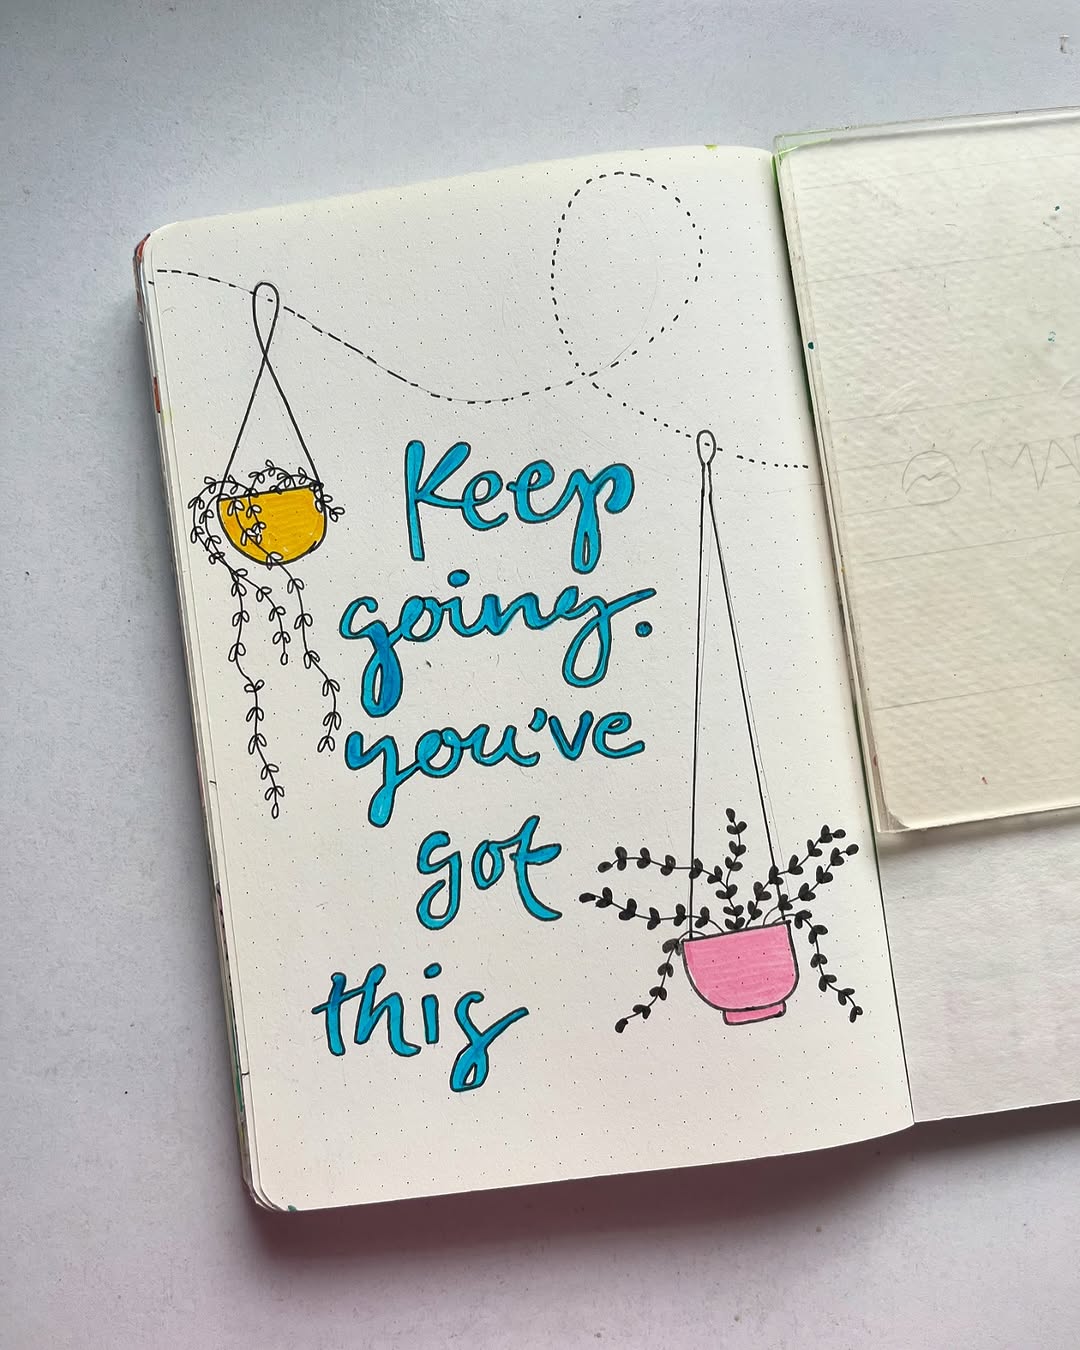 Keep
going.
you've
got
this